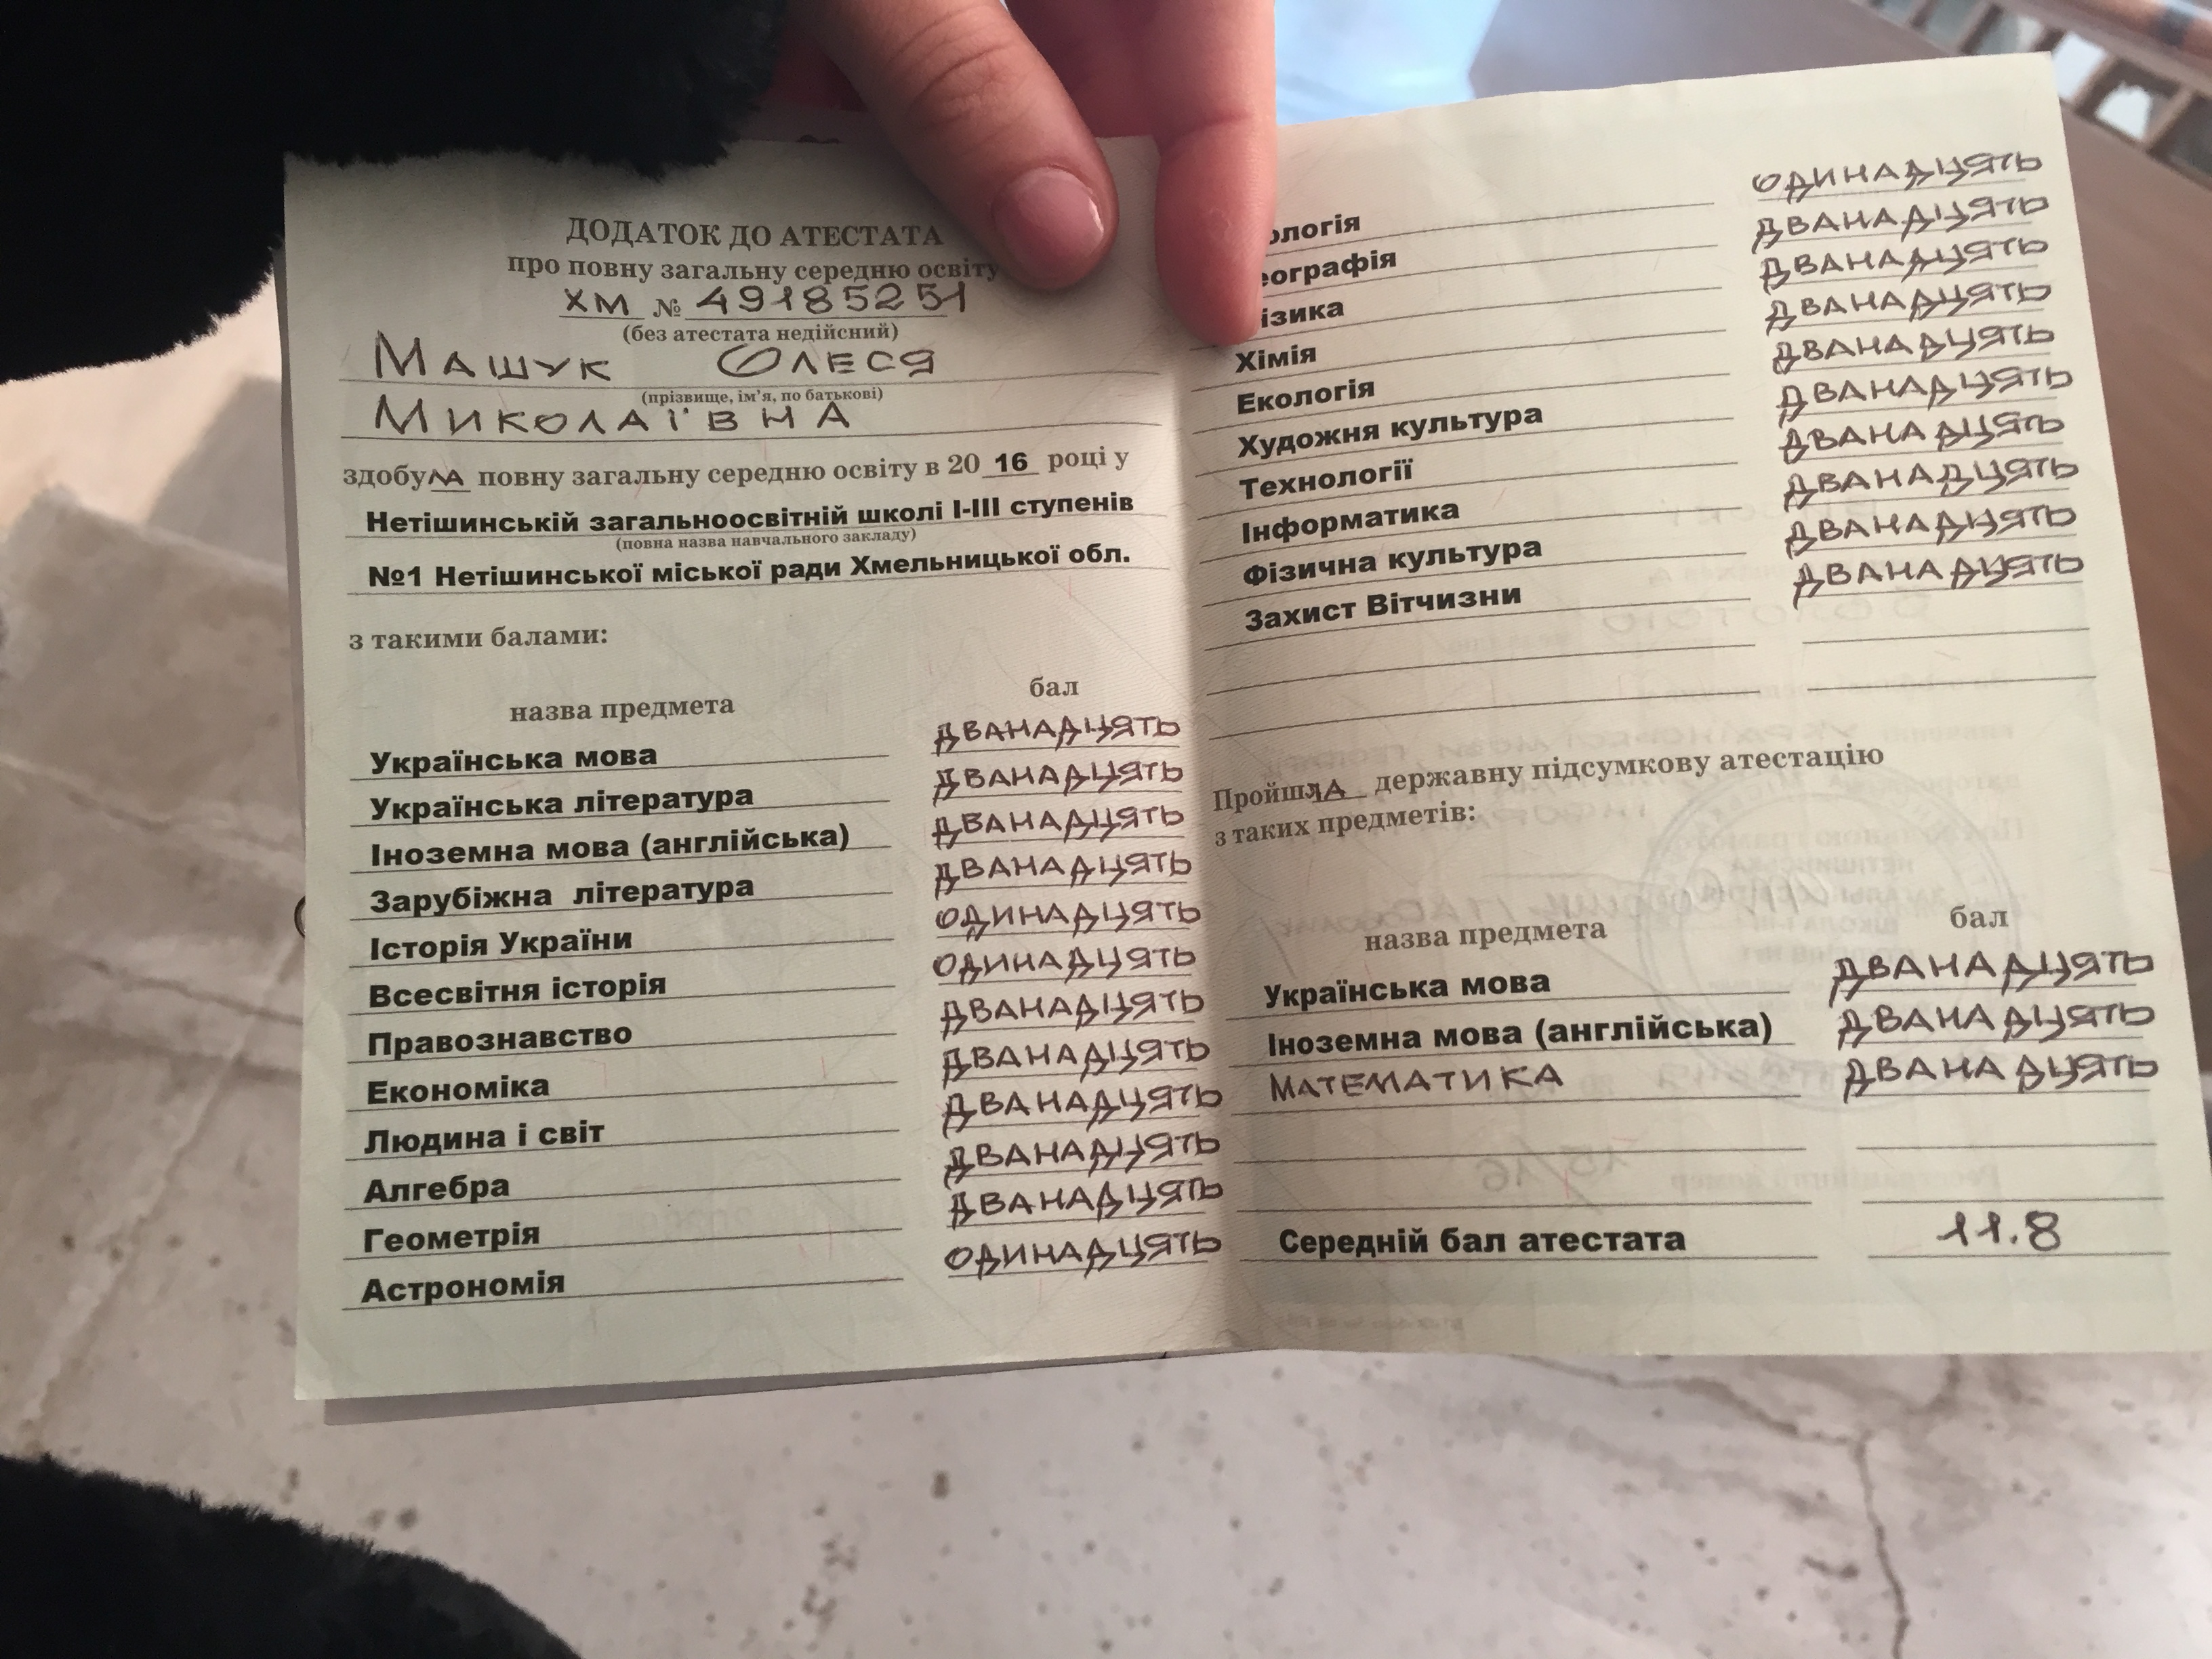 ДОДАТОК ДО АТЕСТАТА
про повну загальну середню освіту
ХМ № 49185251
(без атестата недійсний)
Машук Олеся
(прізвище, ім'я, по батькові)
Миколаївна
здобула повну загальну середню освіту в 20 16 році у
Нетішинській загальноосвітній школі І-ІІІ ступенів
(повна назва навчального закладу)
№1 Нетішинської міської ради Хмельницької обл.
з такими балами:
назва предмета бал
Українська мова дванадцять
Українська література дванадцять
Іноземна мова (англійська) дванадцять
Зарубіжна література дванадцять
Історія України одинадцять
Всесвітня історія одинадцять
Правознавство дванадцять
Економіка дванадцять
Людина і світ дванадцять
Алгебра дванадцять
Геометрія дванадцять
Астрономія одинадцять
ологія одинадцять
еографія дванадцять
ізика дванадцять
Хімія дванадцять
Екологія дванадцять
Художня культура дванадцять
Технології дванадцять
Інформатика дванадцять
Фізична культура дванадцять
Захист Вітчизни дванадцять
Пройшла державну підсумкову атестацію
з таких предметів:
назва предмета бал
Українська мова дванадцять
Іноземна мова (англійська) дванадцять
Математика дванадцять
Середній бал атестата 11.8